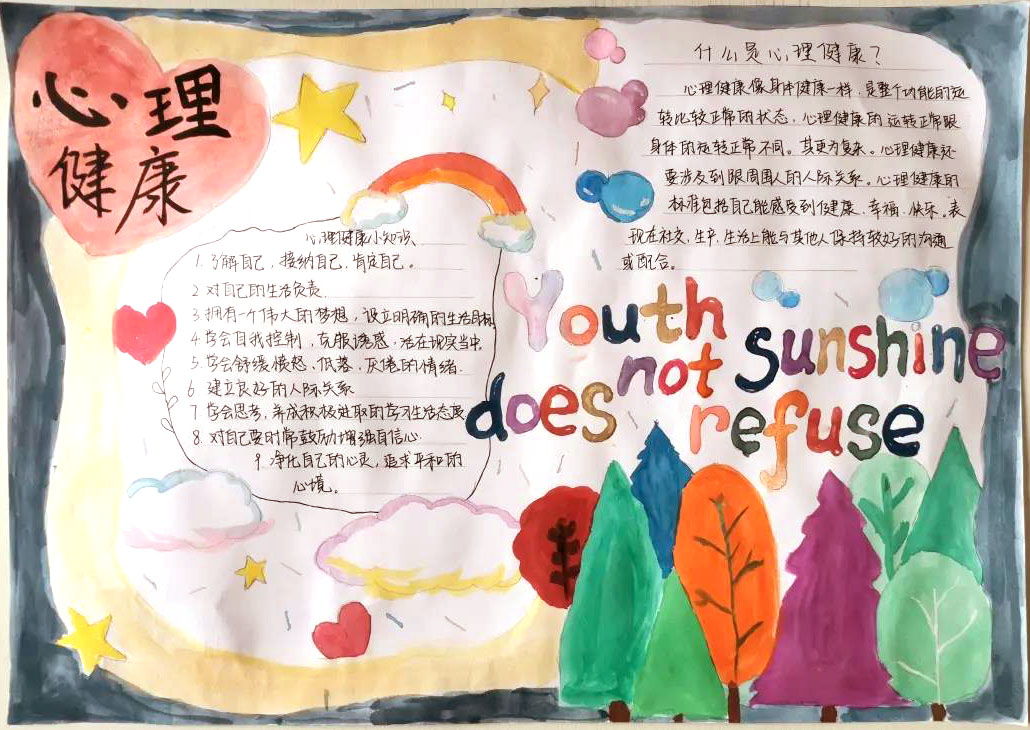 心理
健康
什么是心理健康？
心理健康像身体健康一样，是整个功能的运
转比较正常的状态，心理健康的运转正常跟
身体的运转正常不同。其更为复杂。心理健康还
要涉及到跟周围人的人际关系。心理健康的
标准包括自己能感受到健康、幸福、快乐、表
现在社交，生产，生活上能与其他人保持较好的沟通
或配合。
心理健康小知识
1. 了解自己，接纳自己，肯定自己。
2 对自己的生活负责
3 拥有一个伟大的梦想，设立明确的生活目标
4 学会自我控制，克服诱惑，活在现实当中
5. 学会舒缓愤怒，低落，厌倦的情绪.
6 建立良好的人际关系
7 学会思考，养成积极进取的学习生活态度
8. 对自己要时常鼓励增强自信心
9. 净化自己的心灵，追求平和的
心境。
Youth
not sunshine
does refuse